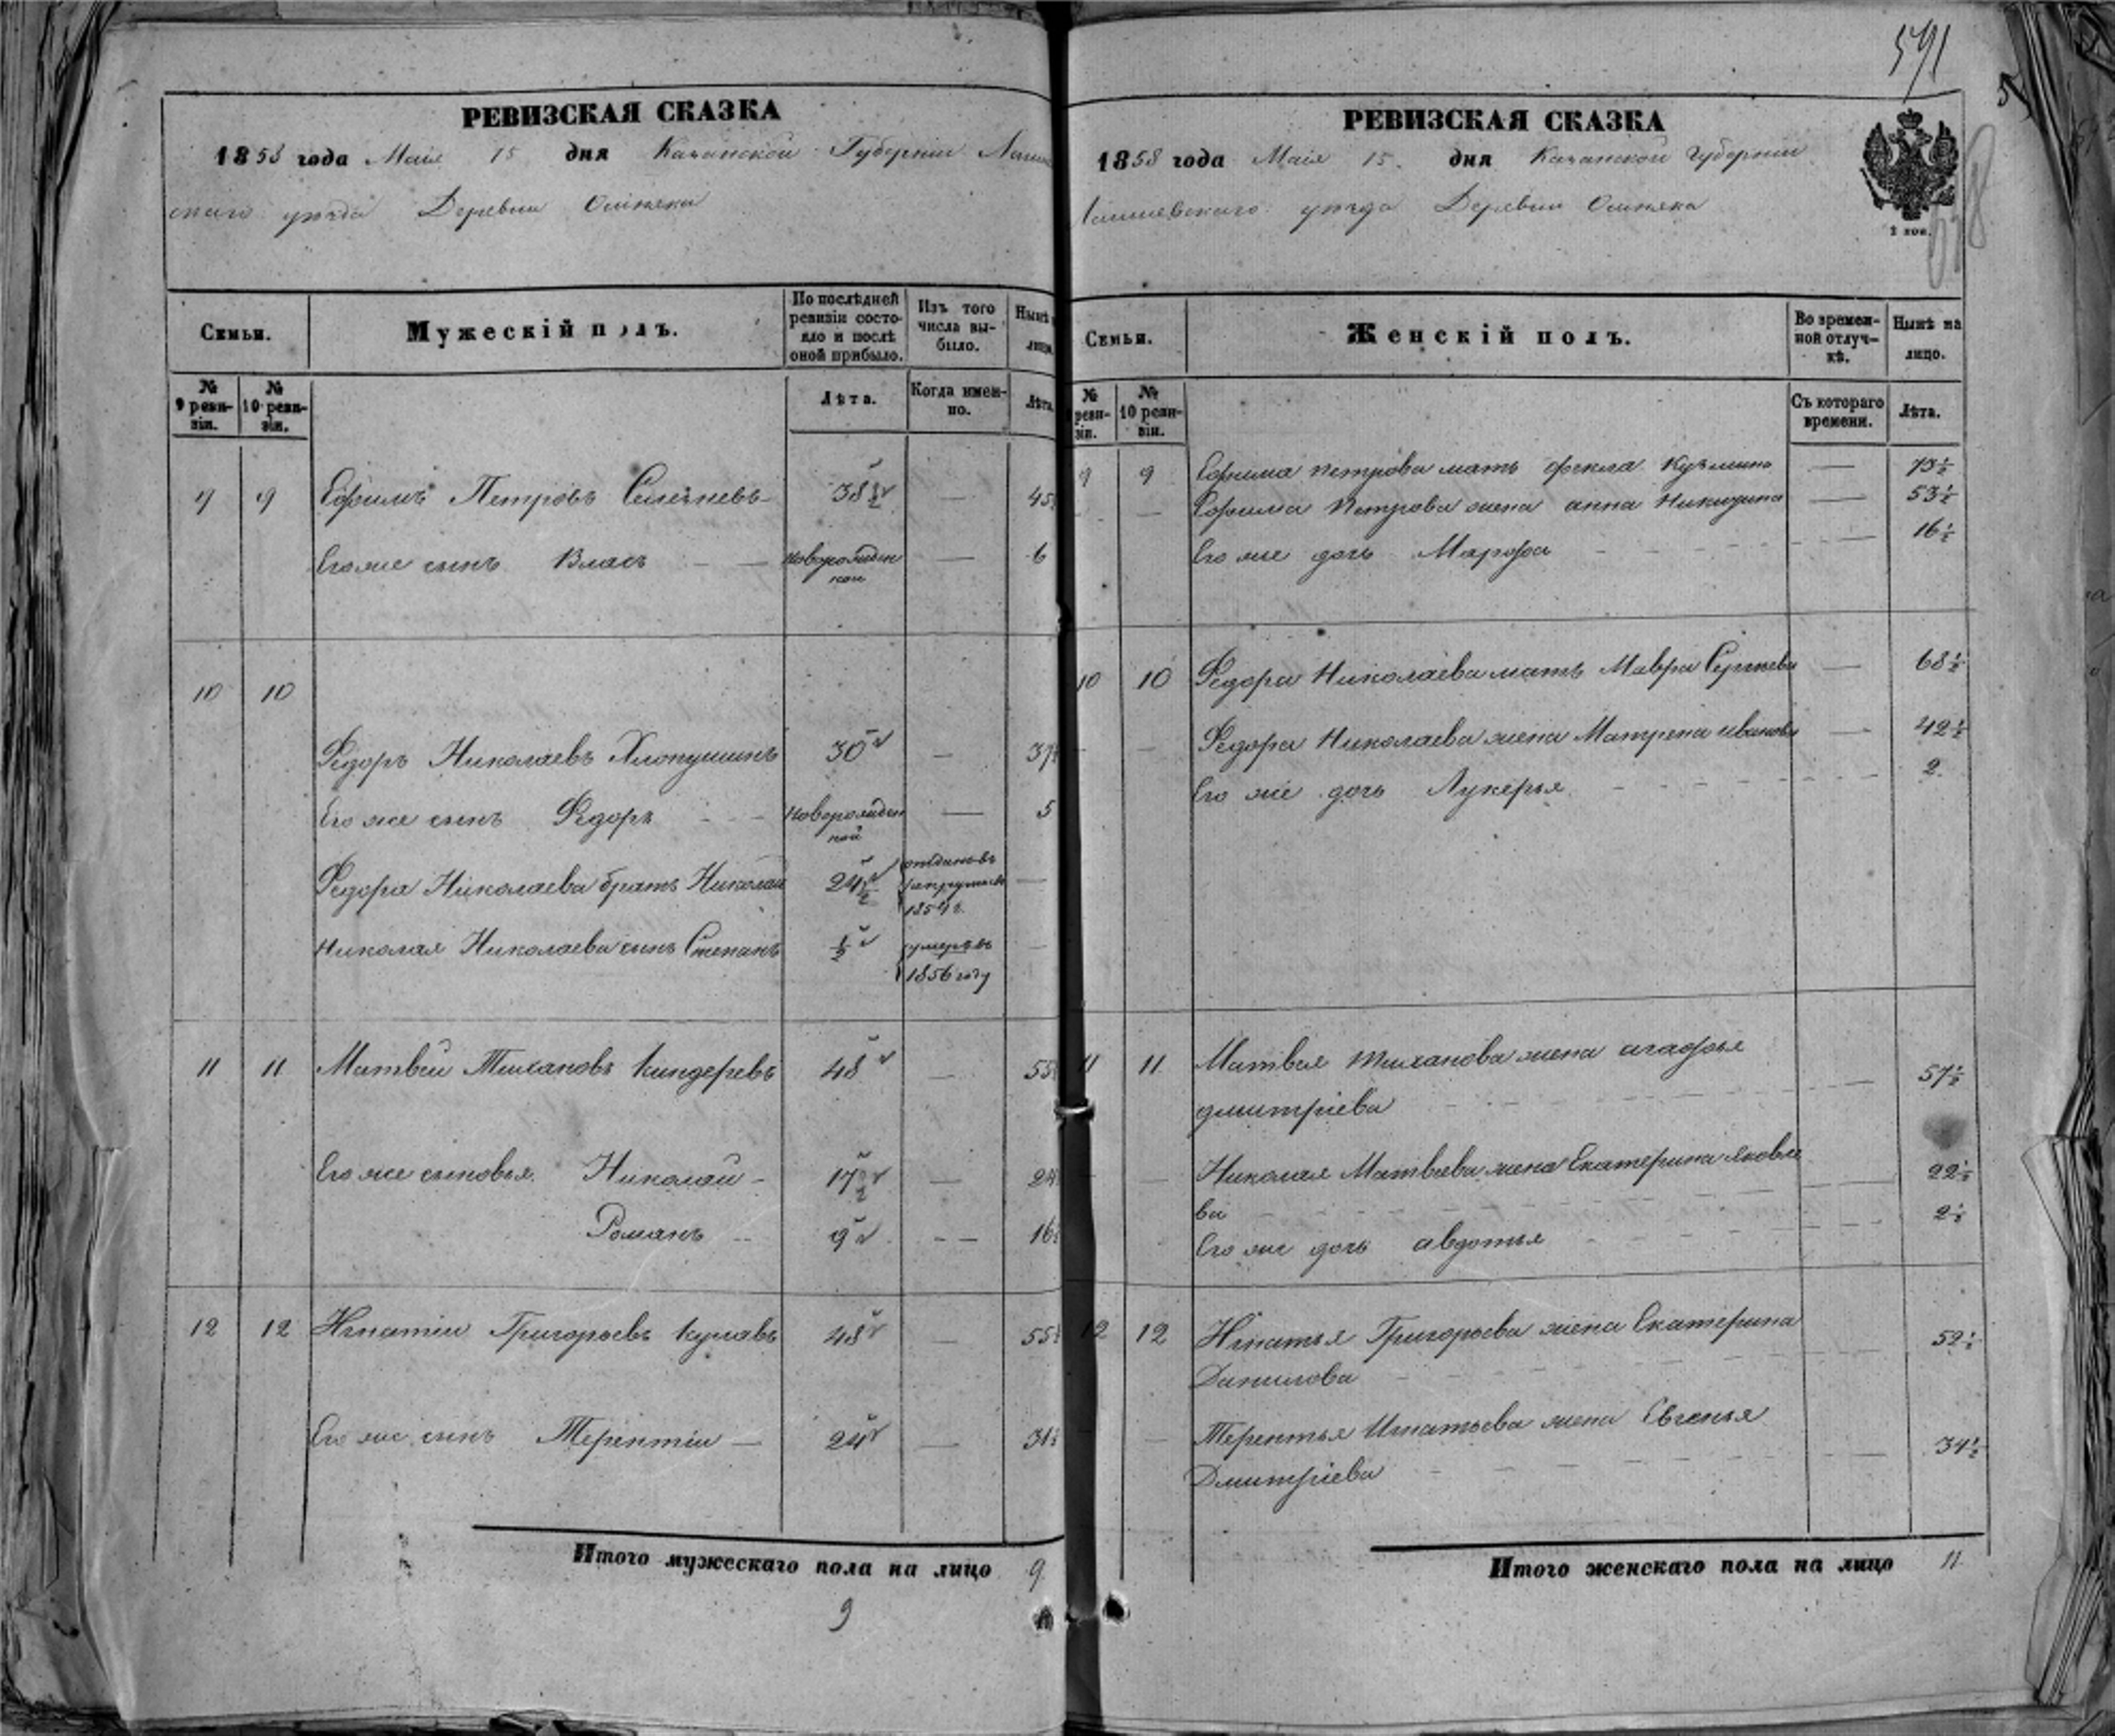 591
РЕВИЗСКАЯ СКАЗКА
1858 года Маія 15 дня Казанской Губерніи
скаго уезда Деревни
Семьи.
Мужескій полъ.
По послѣдней ревизіи состояло и послѣ оной прибыло.
Изъ того числа выбыло.
Нынѣ
лицо
№ 9 ревизіи.
№ 10 ревизіи.
Лѣта.
Когда именно.
Лѣта.
9 9 Ефимъ Петровъ 38 1/2 — 45
Его же сынъ Власъ — — новорожденной — 6
10 10
Федоръ Николаевъ Хлопушинъ 30 — 37
Его же сынъ Федоръ - - - новорожденной — 5
Федора Николаева братъ Николай 24 1/2 отданъ въ рекруты въ 1854 г. —
Николая Николаева сынъ Степанъ 1/2 умеръ въ 1856 году —
11 11 Матвей Тихановъ Киндеревъ 48 — 55
Его же сыновья Николай - 17 1/2 — 24
Романъ -- 9 -- 16
12 12 Игнатіи Григорьевъ 48 — 55
Его же сынъ Терентіи — 24 — 31
Итого мужескаго пола на лицо 9
9
РЕВИЗСКАЯ СКАЗКА
1858 года Маія 15. дня Казанской Губерніи
Лаишевскаго уезда Деревни
2 коп.
Семьи.
Женскій полъ.
Во временной отлучкѣ.
Нынѣ на лицо.
№ ревизіи.
№ 10 ревизіи.
Съ котораго времени.
Лѣта.
9 9 Ефима Петрова мать Фекла Кузмина — 73 1/2
— Ефима Петрова жена анна Никидина — 53 1/2
Его же дочь Марфа - - - — 16 1/2
10 10 Федора Николаева мать Мавра Сергеева — 68 1/2
- - Федора Николаева жена Матрена иванова — 42 1/2
Его же дочь Лукерья - - - 2
11 11 Матвея Тиханова жена агафья
дмитріева - - - — 57 1/2
- — Николая Матвеева жена Екатерина яковле
ва - - - — 22 1/2
Его же дочь авдотья - - - 2 1/2
12 12 Игнатья Григорьева жена Екатерина
Данилова - - - 52 1/2
— Терентья Игнатьева жена Евгенья
Дмитріева - - - — 34 1/2
Итого женскаго пола на лицо 11